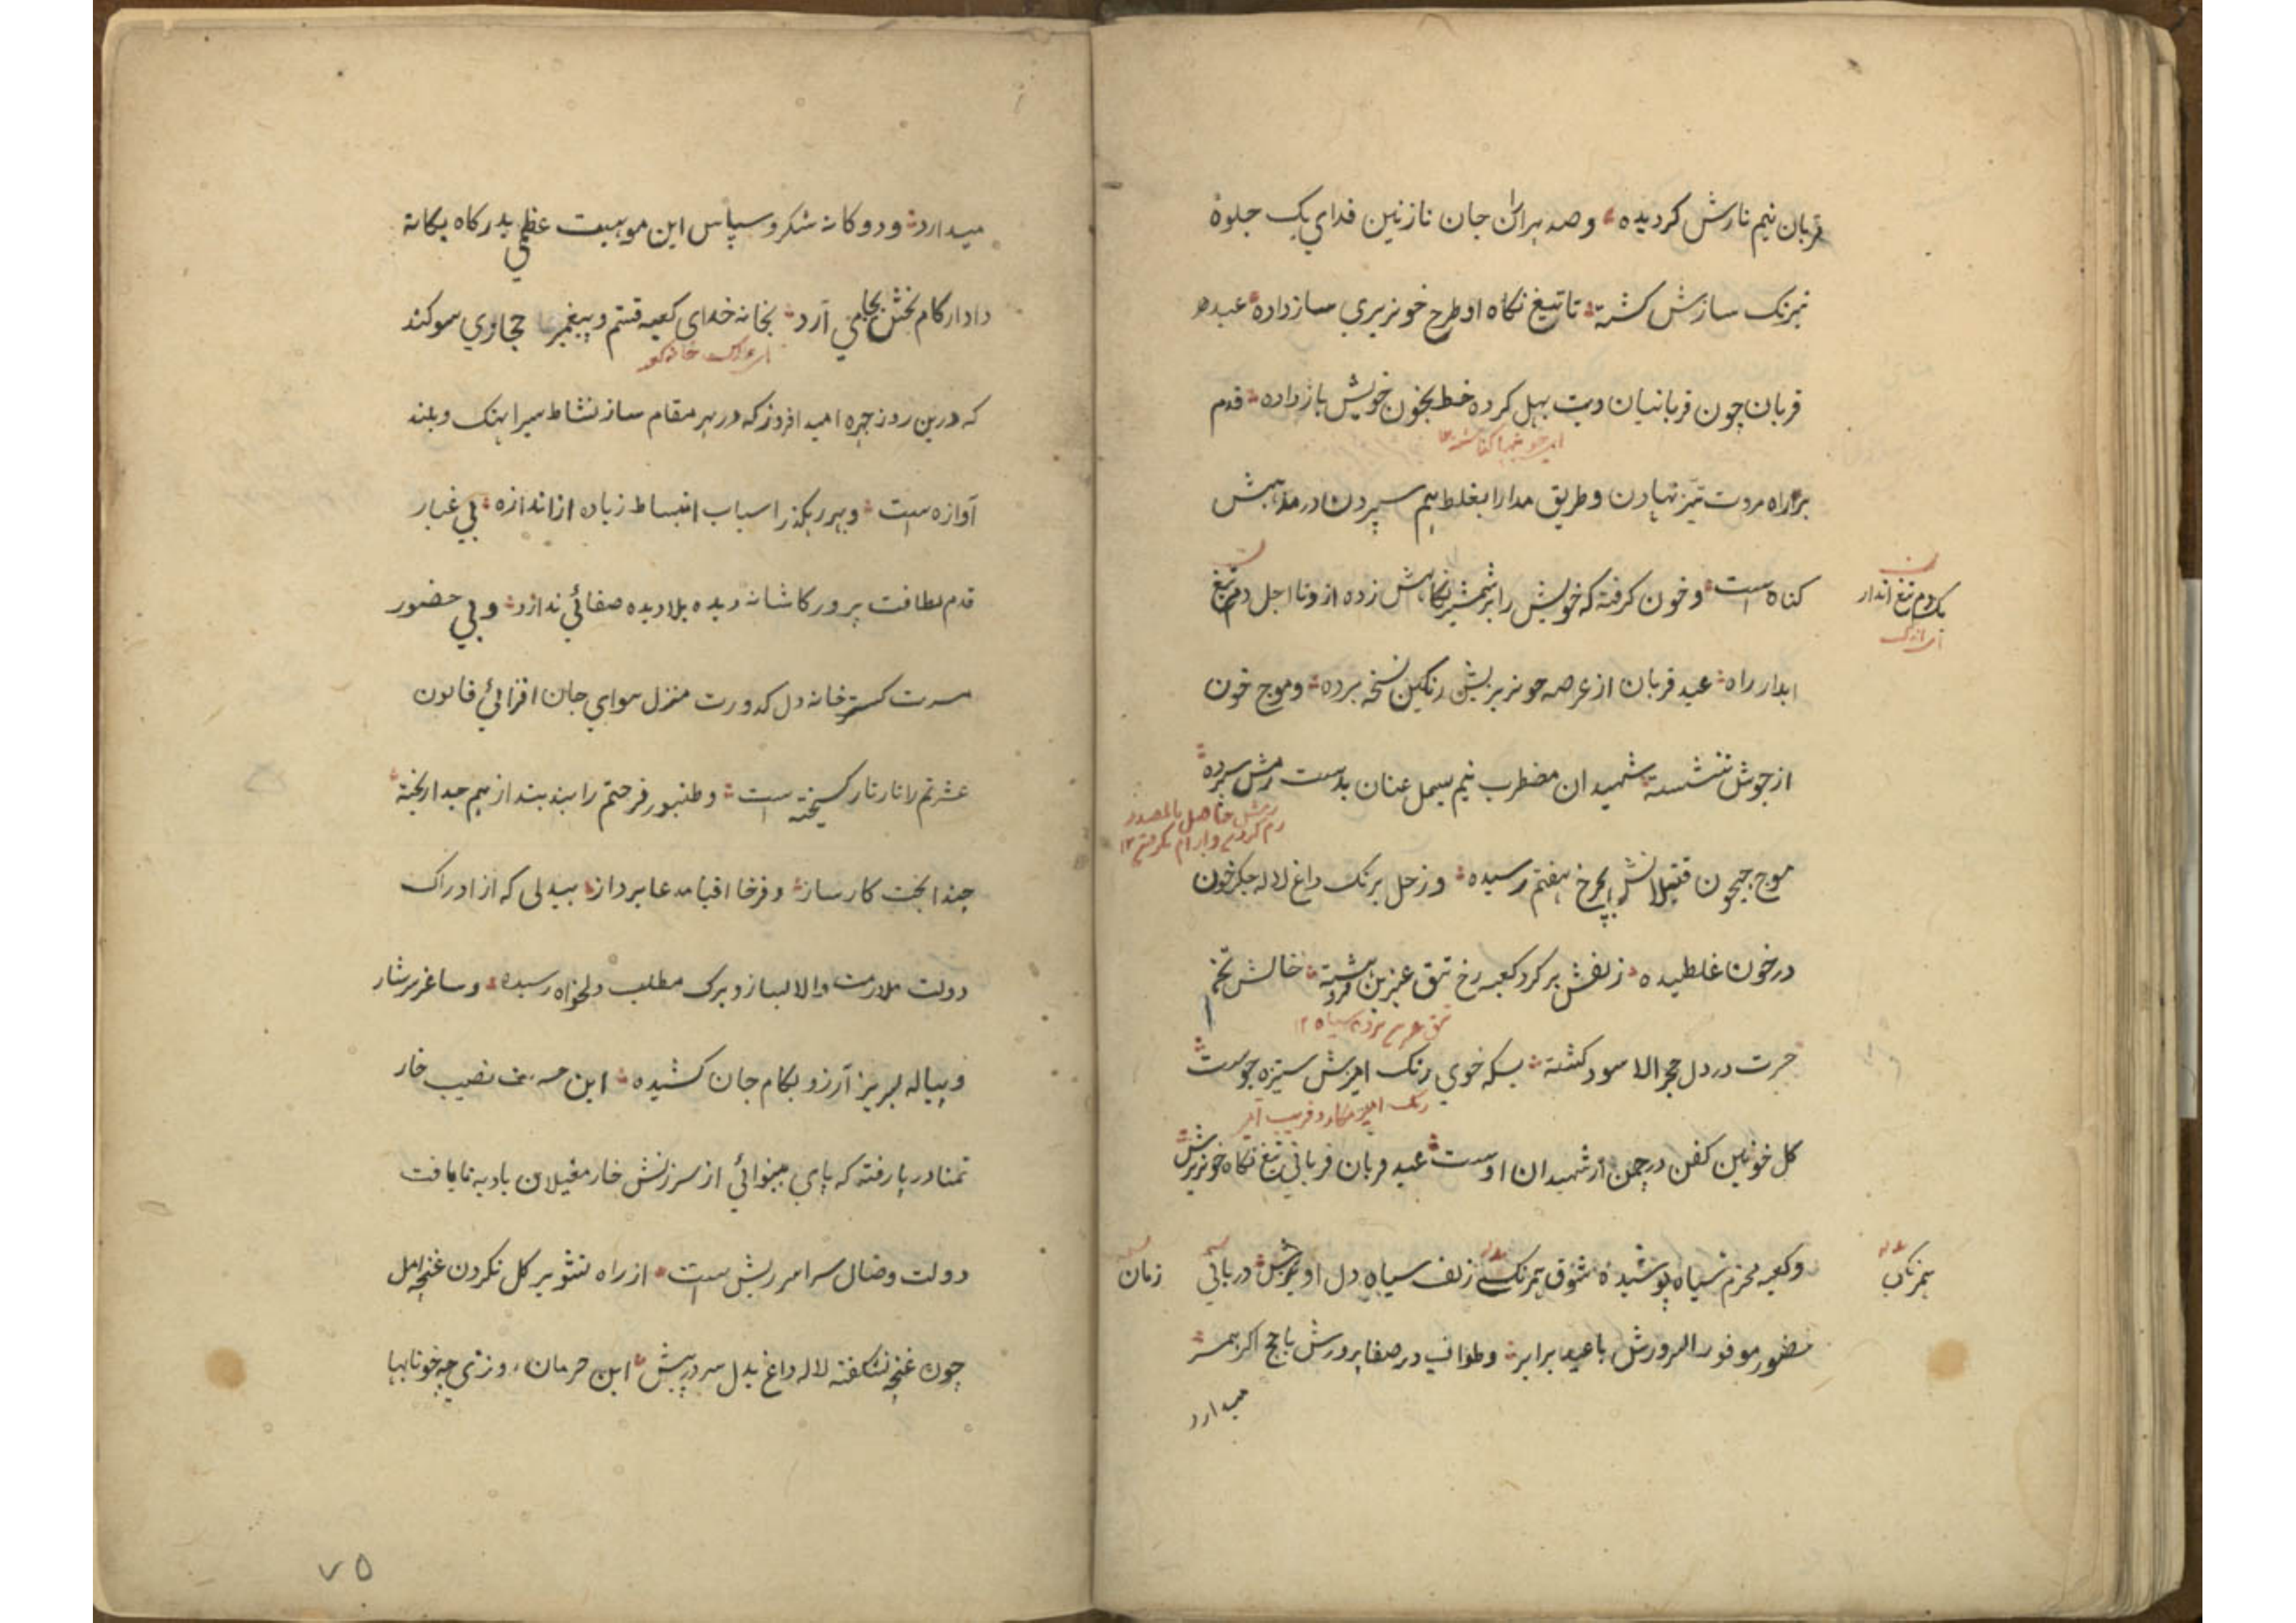 قربان نیم نازش کردیده و صد هزاران جان نازنین فدای یک جلوهٔ
نیرنک سازش کشته تا تیغ نکاه او طرح خونریزی ساز داده عید
قربان چون قربانیان دیت بهل کرده خط بخون خویش باز داده قدم
براه مروت نیز نهادن و طریق مدارا بغلط هم سپردن در مذهبش
کناه است و خون کرفته که خویش را بر شمشیر نکاهش زده از وی تا اجل دم تیغ
یکدم تیغ آبدار
ابدار راه عید قربان از عرصه خونریزیش رنکین نسخه برده و موج خون
از جوش ننشسته شهیدان مضطرب نیم بسمل عنان بدست رمش سپرده
رمش حاصل بالمصدر
رم کردن و ارام نکرفتن ۱۲
موج جیحون قتیلانش بچرخ هفتم رسیده و زحل برنک داغ لاله جکر خون
در خون غلطیده زلفش بر کرد کعبه رخ تتق عنبرین فرو هشته خالش تخم
حسرت در دل حجر الاسود کشته بسکه خوی رنک امیزش ستیزه جوست
رنک امیز مکار و فریب
کل خونین کفن در چمن از شهیدان اوست عید قربان قربانی تیغ نکاه خونریزش
و کعبه محرم سیاه پوشیده شوق زلف سیاه دل اویزش در بانی
زمان
حضور موفور السرورش با عید برابر و طواف در صفا پرورش با حج اکبر همسر
میدارد
میدارد و دوکانه شکر و سپاس این موهبت عظمی بدرکاه یکانه
دادار کام بخش بجا می آرد بخانه خدای کعبه قسم و پیغمبر حجازی سوکند
که درین روز چهره امید افروز که در هر مقام ساز نشاط سیر اهنک و بلند
آوازه است و بهر رهکذر اسباب انبساط زیاده از اندازه بی غبار
قدم لطافت پرور کاشانه دیده بلا دیده صفائی ندارد و بی حضور
مسرت کستر خانه دل کدورت منزل هوای جان افزائی قانون
عشرتم را تار تار کسیخته است و طنبور فرحتم را بند بند از هم جدا ریخته
حبذا بخت کار ساز و فرخا اقبال مدعا پرداز بیدلی که از ادراک
دولت ملازمت والا بساز و برک مطلب دلخواه رسیده و ساغر سرشار
و پیاله لبریز آرزو بکام جان کشیده این نصیب خار
تمنا در پا رفته که پای بینوائی از سرزنش خار مغیلان بادیه نایافت
دولت وصال سراسر ریش است از راه تشویر کل نکردن غنچه امل
چون غنچه نشکفته لاله داغ بدل سر در پیش این حرمان روزی چه خونابها
۷۵